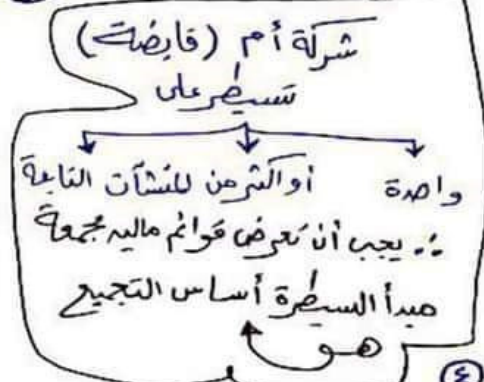 شركة أم (قابضة)
تسيطر على
واحدة أو اكثر من المنشآت التابعة
∴ يجب أن تعرض قوائم ماليه مجمعة
مبدأ السيطرة أساس التجميع
هو
٤